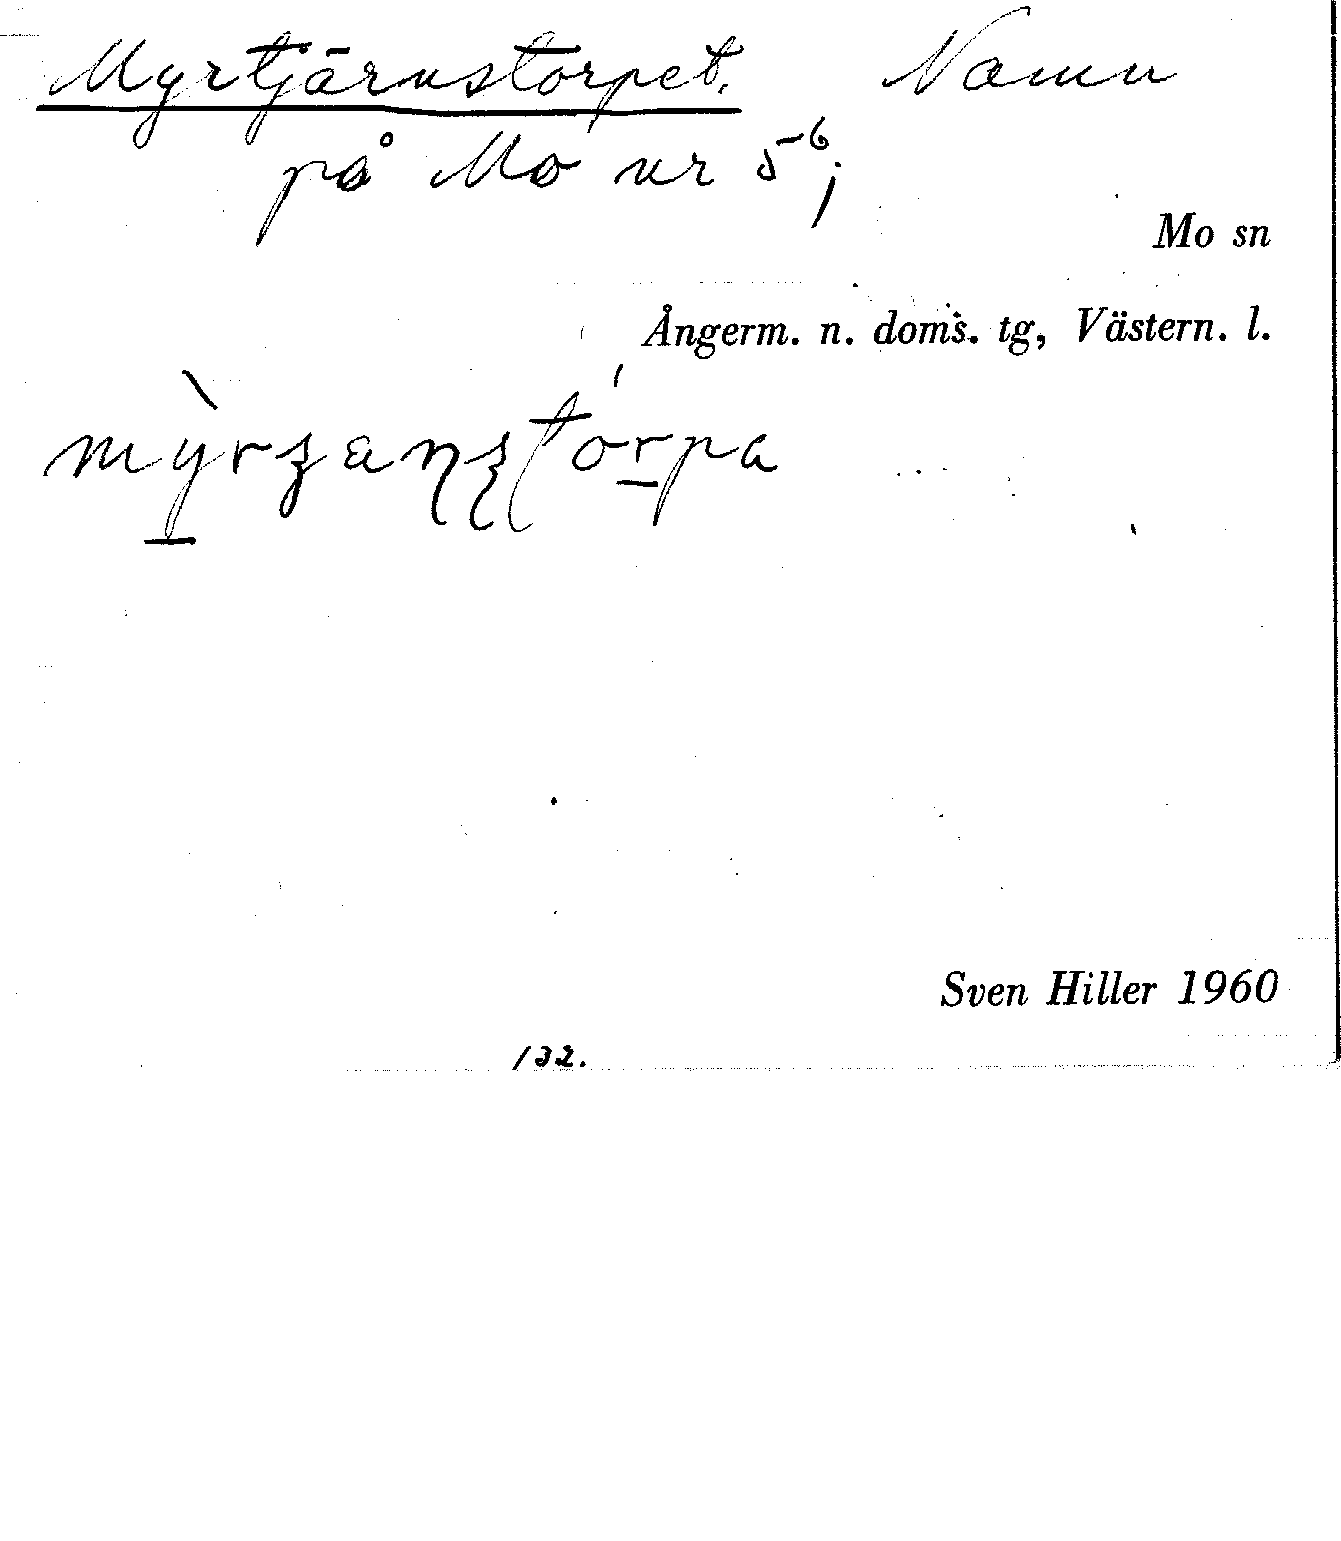 Myrtjärnstorpet. Namn
på Mo nr 5⁶;
Mo sn
Ångerm. n. doms. tg, Västern. l.
Sven Hiller 1960
132.